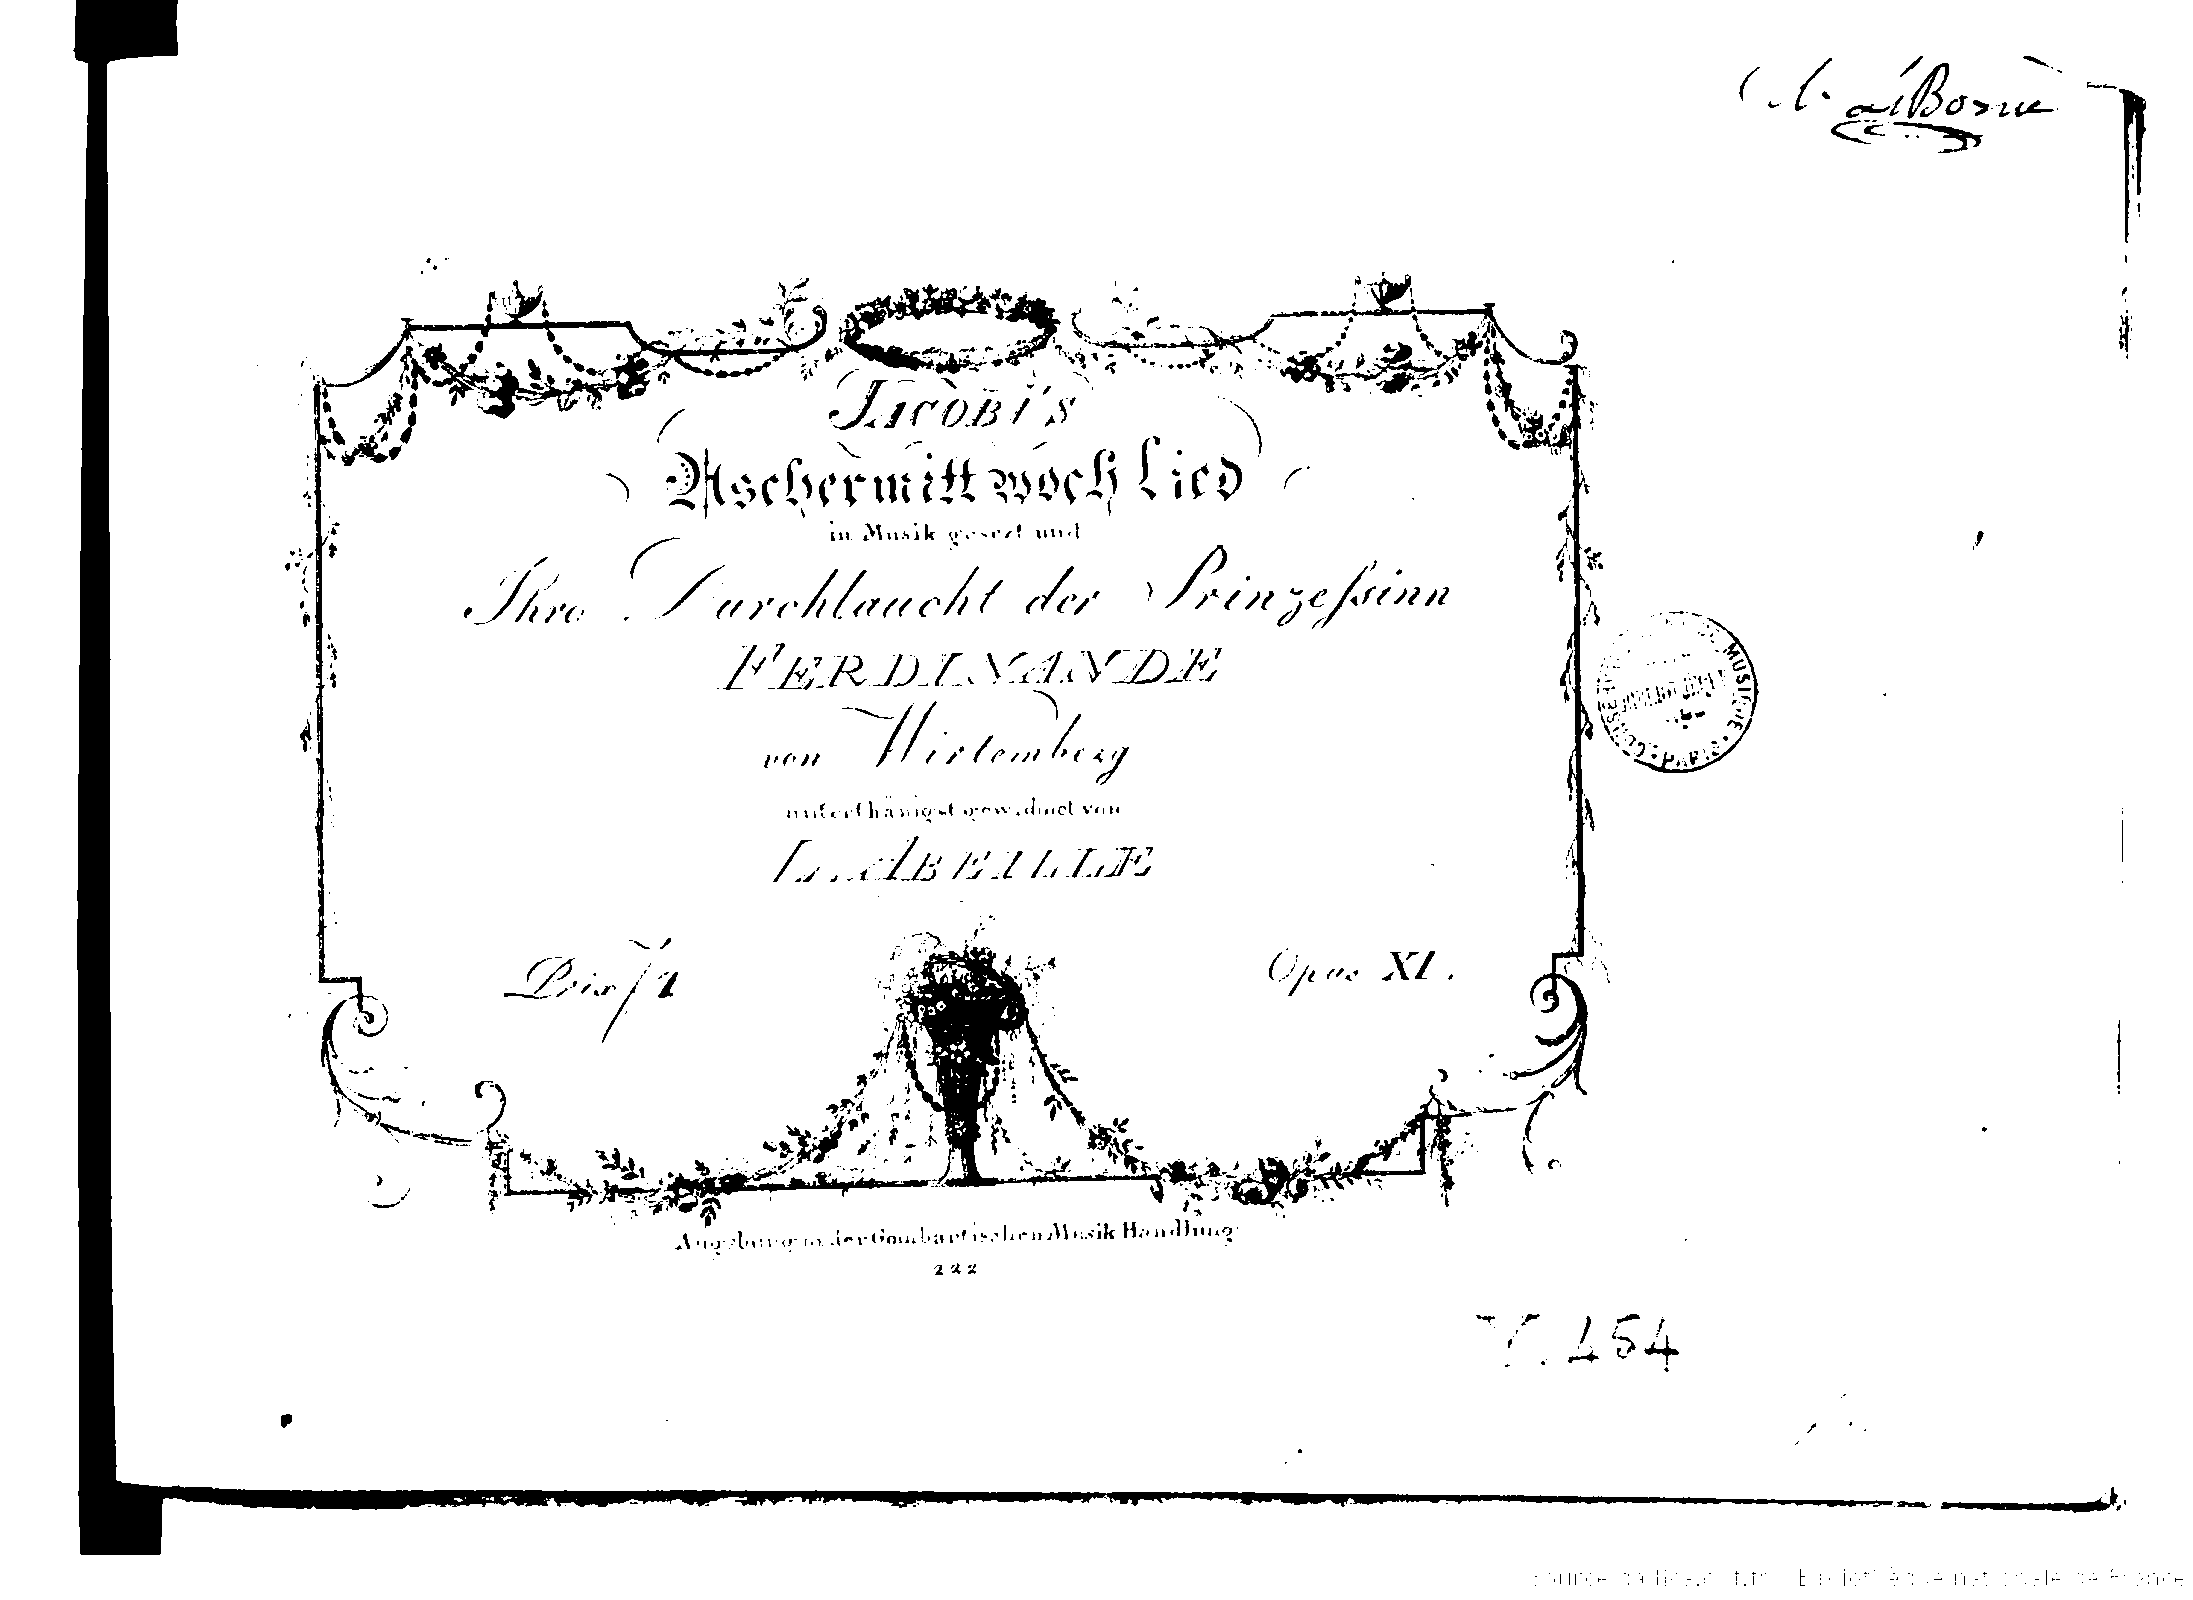 JACOBI'S
Aschermittwoch Lied
in Musik gesezt und
Ihro Durchlaucht der Prinzeſsinn
FERDINANDE
von Wirtemberg
unterthänigst gewidmet von
L. ABEILLE
Prix f 1
Opus XI.
Augsburg in der Gombartischen Musik Handlung
222
V. 454
MUSIQUE • PARIS •
source gallica.bnf.fr / Bibliothèque nationale de France